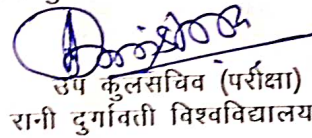 उप कुलसचिव (परीक्षा)
रानी दुर्गावती विश्वविद्यालय